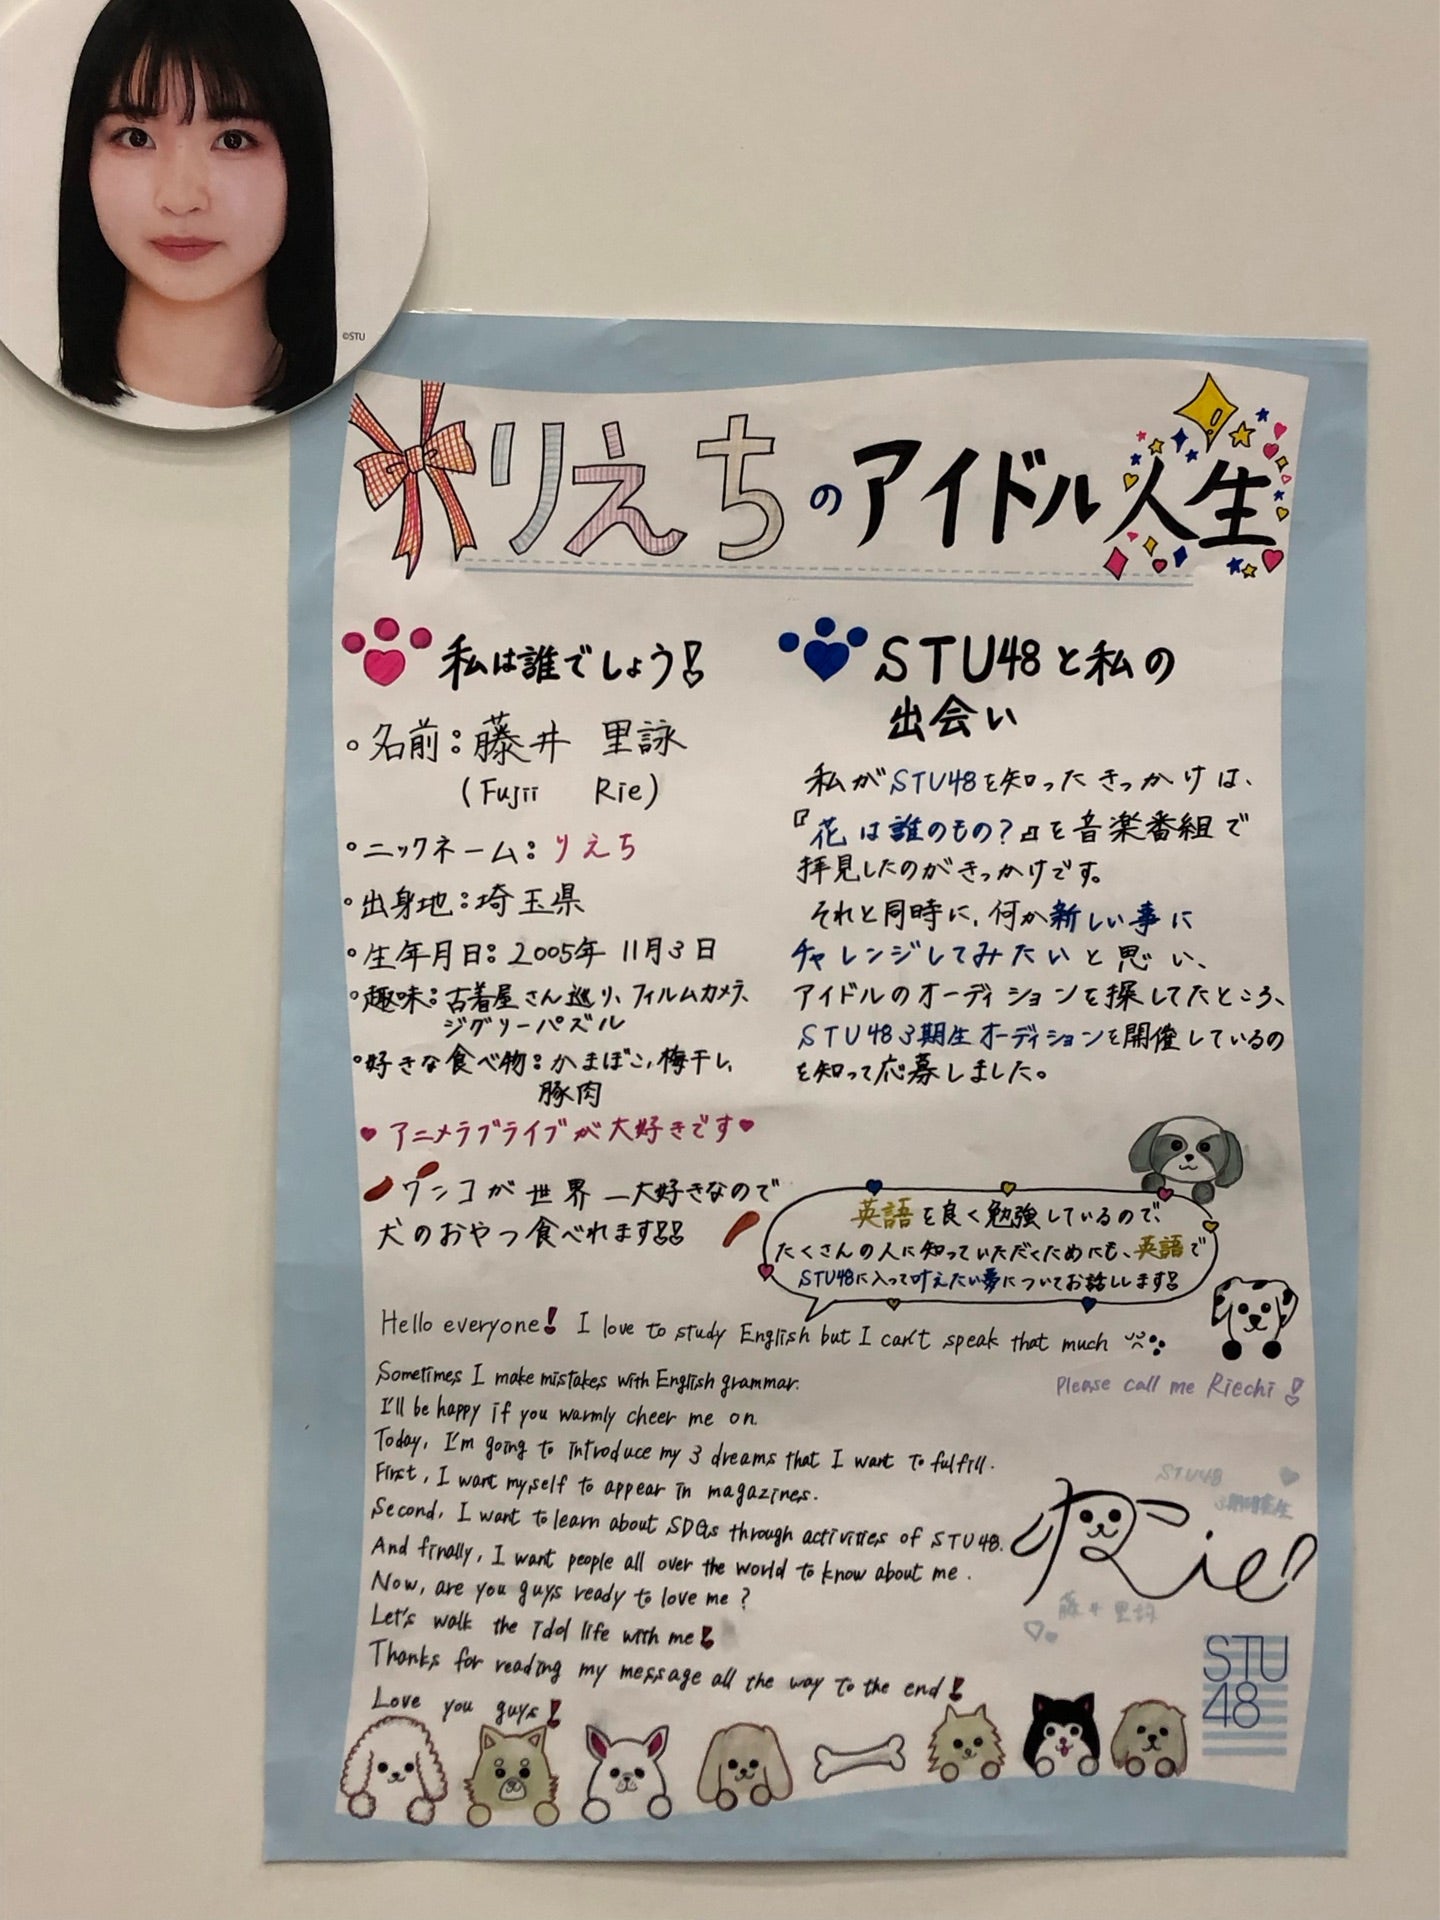 ©STU
りえちのアイドル人生
私は誰でしょう!
・名前:藤井 里詠
(Fujii Rie)
・ニックネーム:りえち
・出身地:埼玉県
・生年月日:2005年11月3日
・趣味:古着屋さん巡り、フィルムカメラ、
ジグソーパズル
・好きな食べ物:かまぼこ、梅干し、
豚肉
♥アニメラブライブが大好きです♥
ワンコが世界一大好きなので
犬のおやつ食べれます!!
STU48と私の
出会い
私がSTU48を知ったきっかけは、
『花は誰のもの?』を音楽番組で
拝見したのがきっかけです。
それと同時に、何か新しい事に
チャレンジしてみたいと思い、
アイドルのオーディションを探してたところ、
STU48 3期生オーディションを開催しているの
を知って応募しました。
英語を良く勉強しているので、
たくさんの人に知っていただくためにも、英語で
STU48に入って叶えたい夢についてお話しします!
Hello everyone! I love to study English but I can't speak that much
Sometimes I make mistakes with English grammar.
I'll be happy if you warmly cheer me on.
Today, I'm going to introduce my 3 dreams that I want to fulfill.
First, I want myself to appear in magazines.
Second, I want to learn about SDGs through activities of STU48.
And finally, I want people all over the world to know about me.
Now, are you guys ready to love me?
Let's walk the idol life with me!
Thanks for reading my message all the way to the end!
Love you guys!
Please call me Riechi!
STU48
3期研究生
Rie!
藤井里詠
STU
48